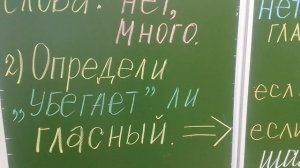 слова: нет,
много.
2) Определи
„убегает” ли
гласный. ⇒
нет
гла
есл
если